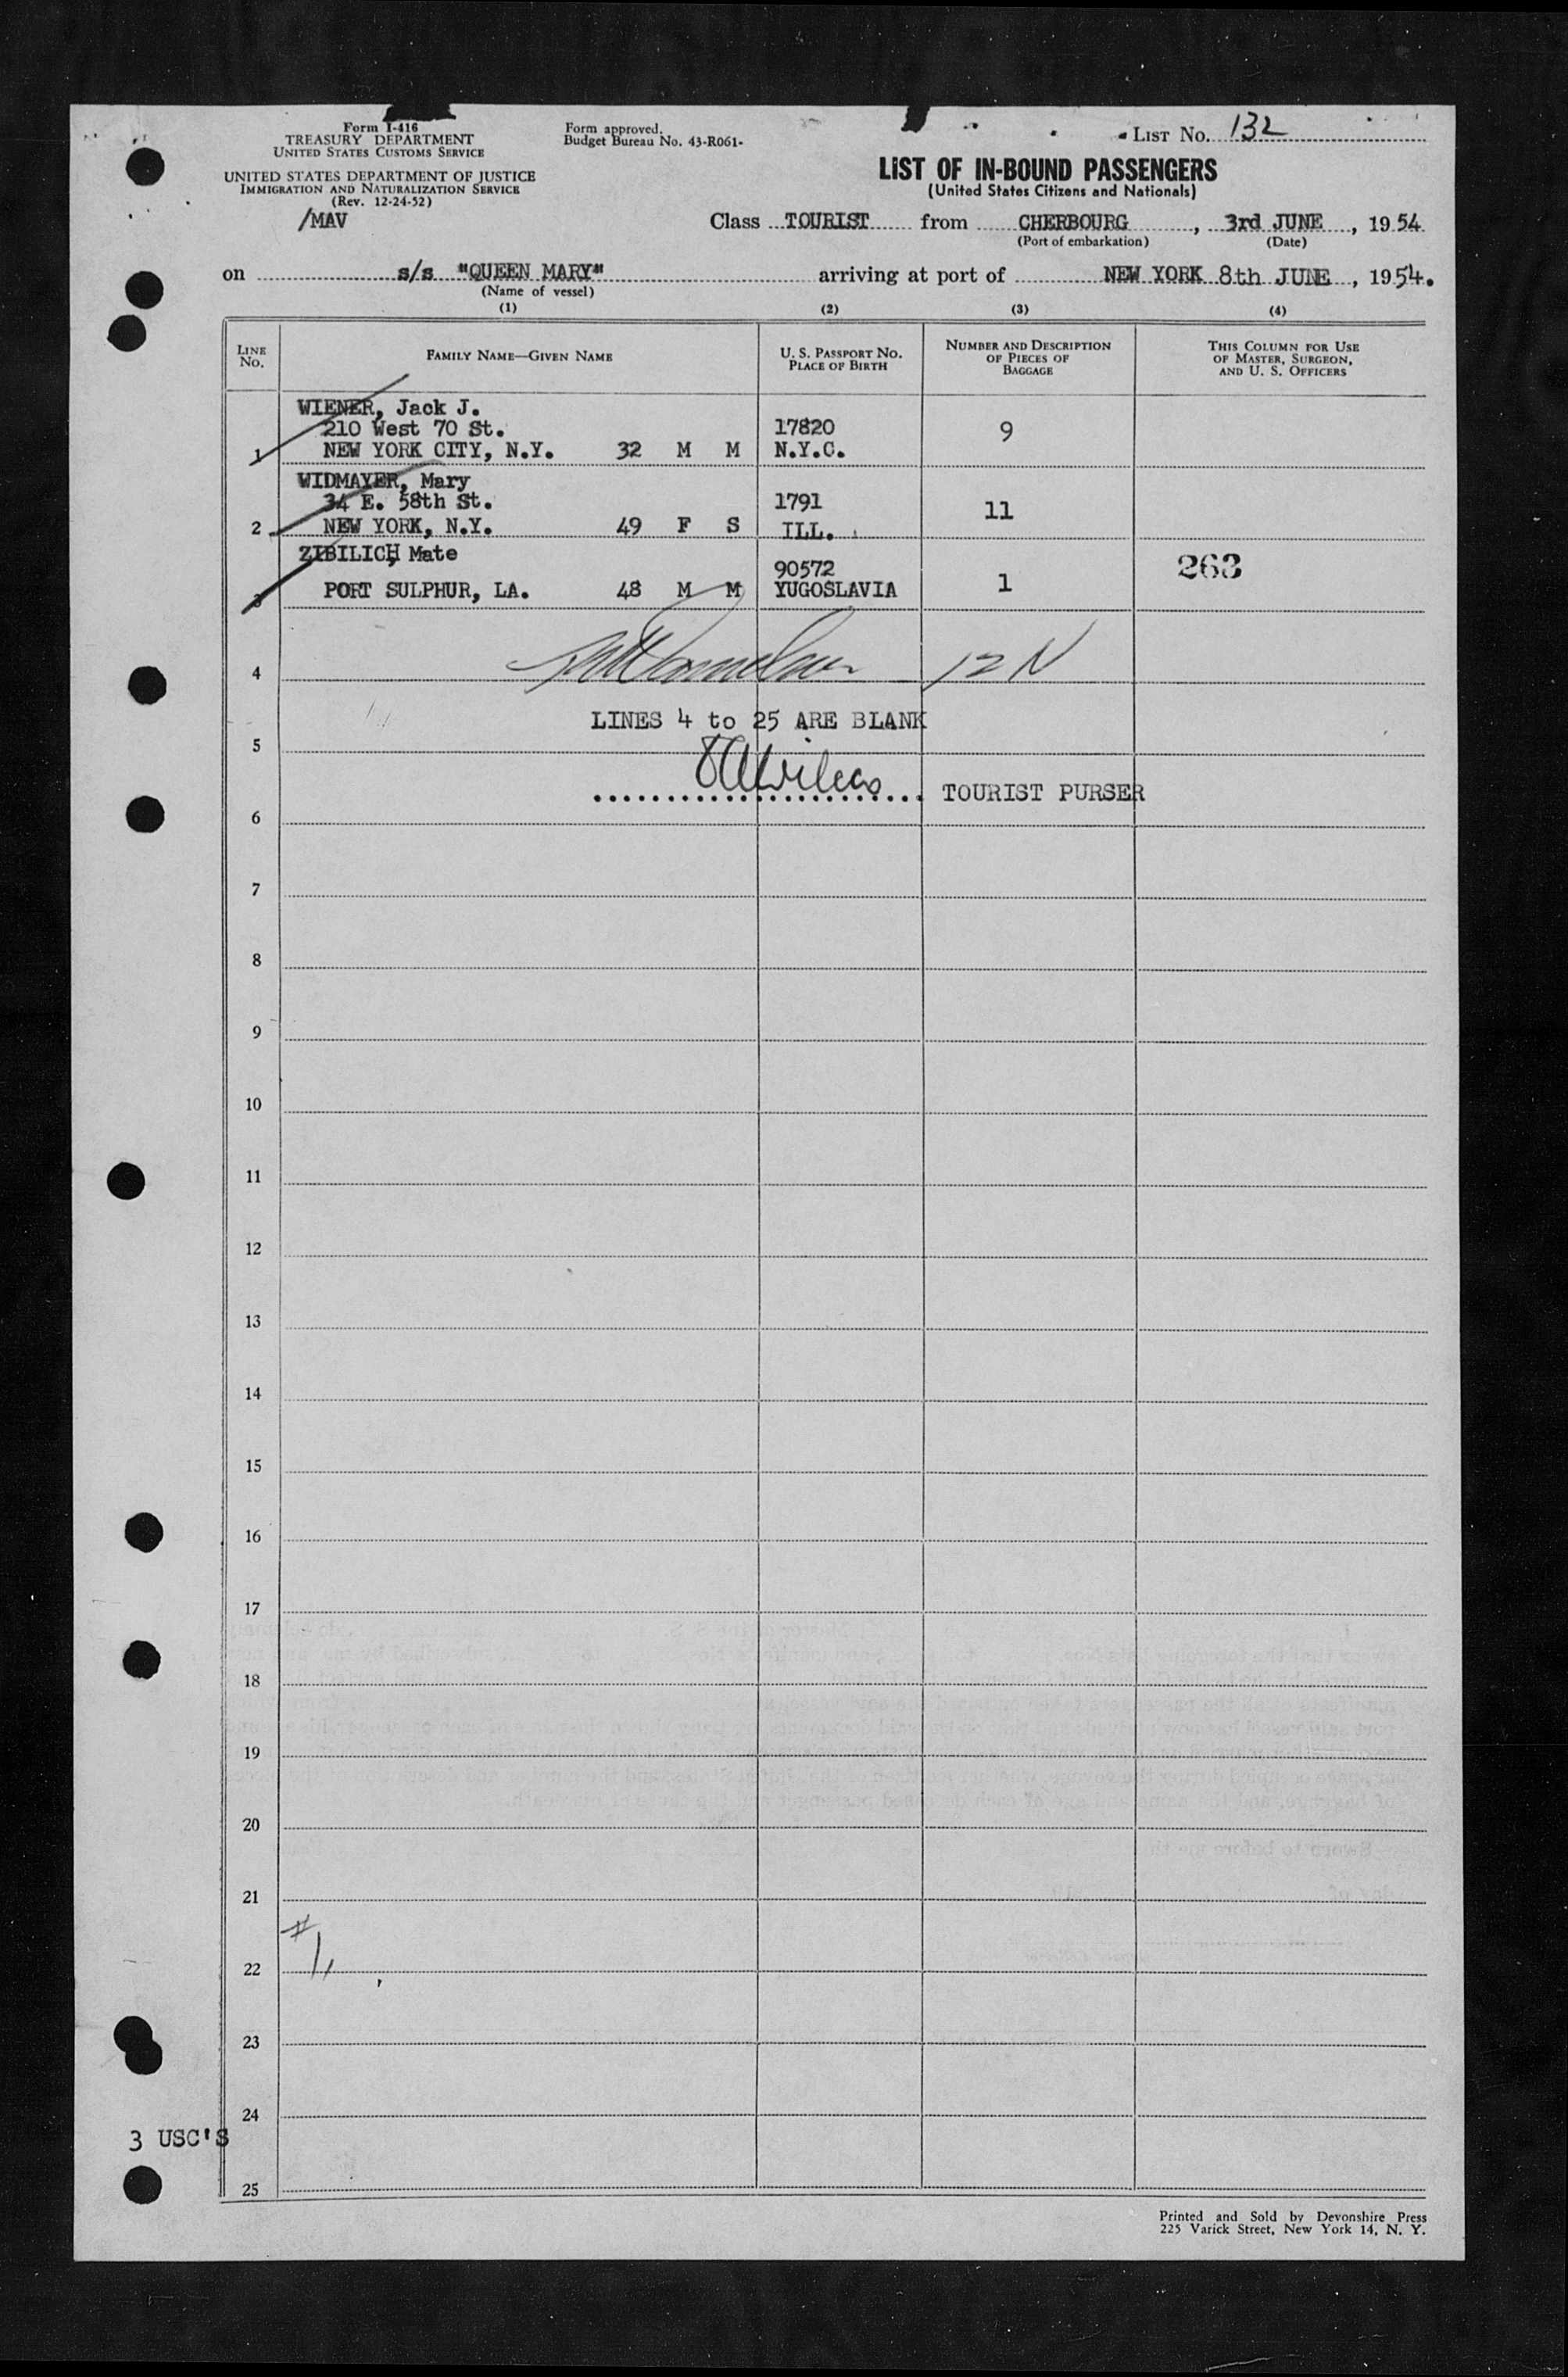 Form I-416
TREASURY DEPARTMENT
UNITED STATES CUSTOMS SERVICE
UNITED STATES DEPARTMENT OF JUSTICE
IMMIGRATION AND NATURALIZATION SERVICE
(Rev. 12-24-52)
/MAV
Form approved.
Budget Bureau No. 43-R061-
LIST NO. 132
LIST OF IN-BOUND PASSENGERS
(United States Citizens and Nationals)
Class TOURIST from CHERBOURG, 3rd JUNE, 1954
(Port of embarkation) (Date)
on s/s "QUEEN MARY" arriving at port of NEW YORK 8th JUNE, 1954.
(Name of vessel)
(1) (2) (3) (4)
LINE NO.
FAMILY NAME—GIVEN NAME
U. S. PASSPORT NO.
PLACE OF BIRTH
NUMBER AND DESCRIPTION
OF PIECES OF
BAGGAGE
THIS COLUMN FOR USE
OF MASTER, SURGEON,
AND U. S. OFFICERS
WIENER, Jack J.
210 West 70 St. 17820 9
1 NEW YORK CITY, N.Y. 32 M M N.Y.C.
WIDMAYER, Mary
34 E. 58th St. 1791 11
2 NEW YORK, N.Y. 49 F S ILL.
ZIBILICH, Mate 90572 263
3 PORT SULPHUR, LA. 48 M M YUGOSLAVIA 1
4 12 N
LINES 4 to 25 ARE BLANK
5
TOURIST PURSER
6
7
8
9
10
11
12
13
14
15
16
17
18
19
20
21
#1
22
23
24
3 USC'S
25
Printed and Sold by Devonshire Press
225 Varick Street, New York 14, N. Y.